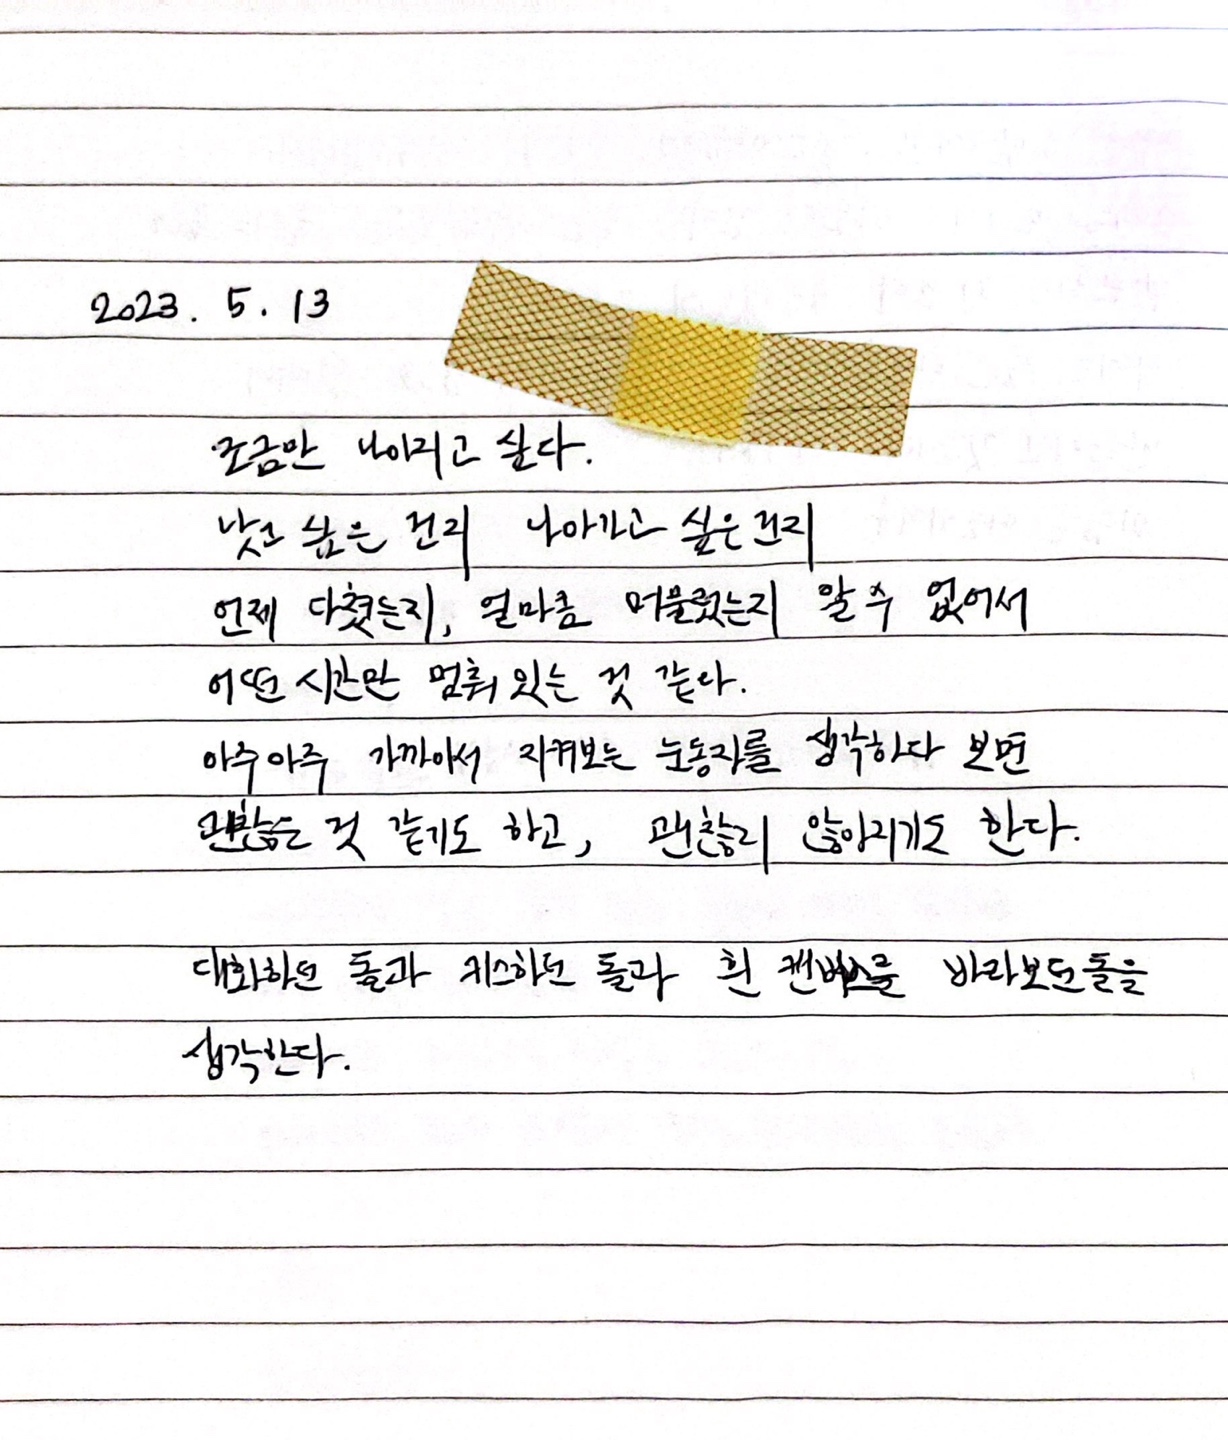 2023. 5. 13
조금만 나아지고 싶다.
낫고 싶은 건지 나아가고 싶은 건지
언제 다쳤는지, 얼마큼 머물렀는지 알 수 없어서
어떤 시간만 멈춰 있는 것 같다.
아주 아주 가까이서 지켜보는 눈동자를 생각하다 보면
괜찮은 것 같기도 하고, 괜찮지 않아지기도 한다.
대화하던 돌과 키스하던 돌과 흰 캔버스를 바라보던 돌을
생각한다.